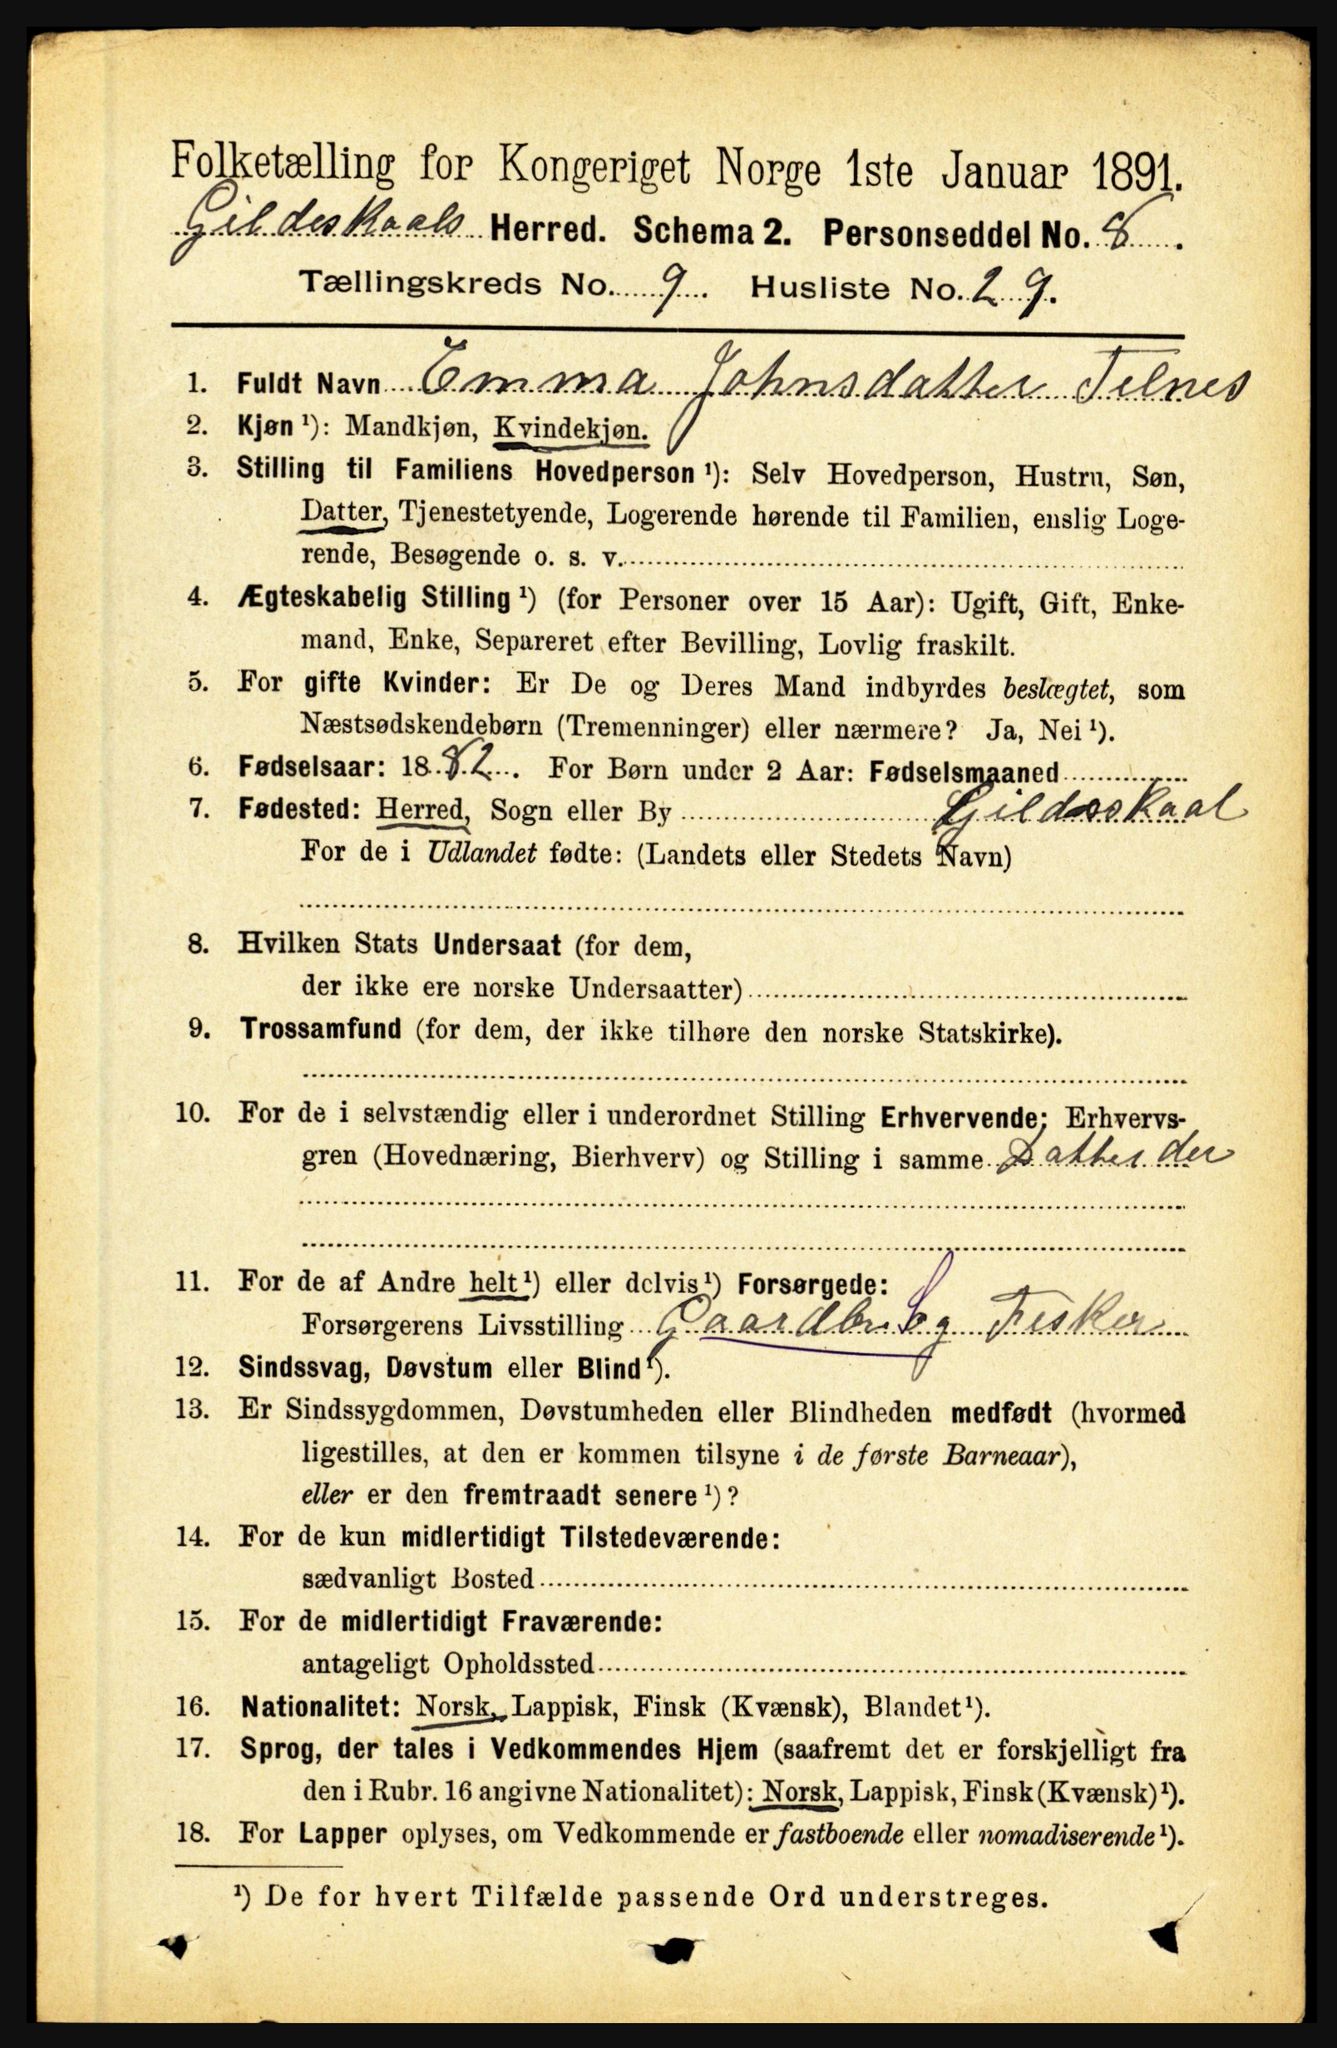 Folketælling for Kongeriget Norge 1ste Januar 1891.
Gildeskaals Herred. Schema 2. Personseddel No. 8.
Tællingskreds No. 9. Husliste No. 29.
1. Fuldt Navn Emma Johnsdatter Telnes
2. Kjøn ¹): Mandkjøn, Kvindekjøn.
3. Stilling til Familiens Hovedperson ¹): Selv Hovedperson, Hustru, Søn,
Datter, Tjenestetyende, Logerende hørende til Familien, enslig Loge-
rende, Besøgende o. s. v.
4. Ægteskabelig Stilling ¹) (for Personer over 15 Aar): Ugift, Gift, Enke-
mand, Enke, Separeret efter Bevilling, Lovlig fraskilt.
5. For gifte Kvinder: Er De og Deres Mand indbyrdes beslægtet, som
Næstsødskendebørn (Tremenninger) eller nærmere? Ja, Nei ¹).
6. Fødselsaar: 1882. For Børn under 2 Aar: Fødselsmaaned
7. Fødested: Herred, Sogn eller By Gildeskaal
For de i Udlandet fødte: (Landets eller Stedets Navn)
8. Hvilken Stats Undersaat (for dem,
der ikke ere norske Undersaatter)
9. Trossamfund (for dem, der ikke tilhøre den norske Statskirke).
10. For de i selvstændig eller i underordnet Stilling Erhvervende: Erhvervs-
gren (Hovednæring, Bierhverv) og Stilling i samme Datter der
11. For de af Andre helt ¹) eller delvis ¹) Forsørgede:
Forsørgerens Livsstilling Gaardbr. S og Fisker
12. Sindssvag, Døvstum eller Blind ¹).
13. Er Sindssygdommen, Døvstumheden eller Blindheden medfødt (hvormed
ligestilles, at den er kommen tilsyne i de første Barneaar),
eller er den fremtraadt senere ¹)?
14. For de kun midlertidigt Tilstedeværende:
sædvanligt Bosted
15. For de midlertidigt Fraværende:
antageligt Opholdssted
16. Nationalitet: Norsk, Lappisk, Finsk (Kvænsk), Blandet ¹).
17. Sprog, der tales i Vedkommendes Hjem (saafremt det er forskjelligt fra
den i Rubr. 16 angivne Nationalitet): Norsk, Lappisk, Finsk (Kvænsk) ¹).
18. For Lapper oplyses, om Vedkommende er fastboende eller nomadiserende ¹).
¹) De for hvert Tilfælde passende Ord understreges.